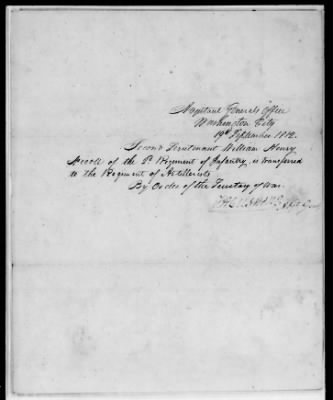 Adjutant Generals Office
Washington City
19th September 1812.
Second Lieutenant William Henry
of the 5th Regiment of Infantry, is transferred
to the Regiment of Artillerists
By Order of the Secretary of War.